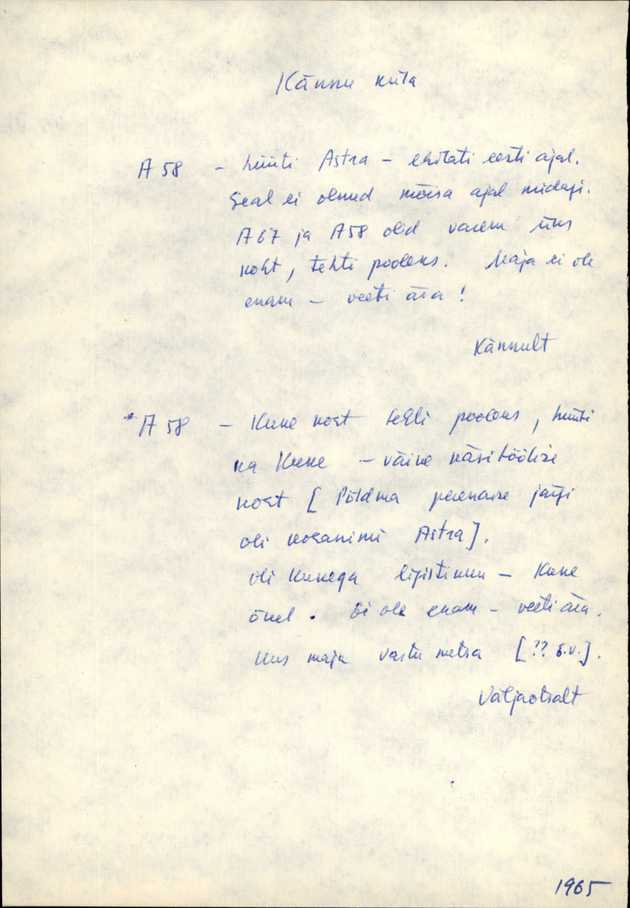 Kännu küla
A 58 – hüüti Astra – ehitati eesti ajal.
Seal ei olnud mõisa ajal midagi.
A 67 ja A 58 olid varem üks
koht, tehti pooleks. Maja ei ole
enam – veeti ära!
Kännult
*A 58 – Kuke koht tehti pooleks, hüüti
ka Kuke – väike käsitöölise
koht [Põldma perenaise järgi
oli kohanimi Astra].
oli Kukega ligistikku – Kuke
õuel. Ei ole enam – veeti ära.
Uus maja vastu metsa [?? E.V.].
Väljaotsalt
1965